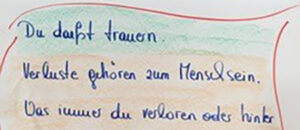 Du darfst trauern.
Verluste gehören zum Menschsein.
Was immer du verloren oder hinter